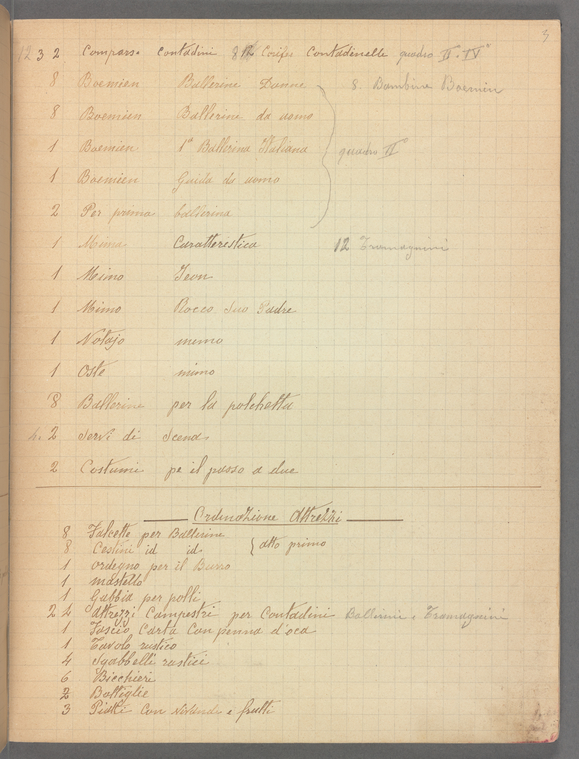 5
12 3 2 Comparse Contadini 8 Corifee Contadinelle quadro II e IV°
8 Boemien Ballerine Donne 8. Bambine Boemien
8 Boemien Ballerine da uomo
1 Boemien 1ª Ballerina Italiana quadro II°
1 Boemien Guida da uomo
2 Per prima ballerina
1 Mima Caratteristica 12 Tramagnini
1 Mimo Jeon
1 Mimo Rocco suo Padre
1 Notajo mimo
1 Oste mimo
8 Ballerine per la polchetta
2 Servi di Scena
2 Costumi pe il passo a due
Ordinazione Attrezzi
8 Falcette per Ballerine
8 Cestini id id } atto primo
1 ordegno per il Burro
1 mastello
1 Gabbia per polli
2 4 attrezzi Campestri per Contadini Ballerini e Tramagnini
1 Fascio Carta Con penna d'oca
1 Tavolo rustico
4 Sgabbelli rustici
6 Bicchieri
2 Bottiglie
3 Piatti Con vivande e frutti